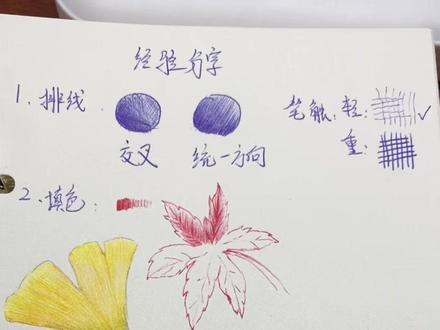 经验分享
1、排线
笔触：轻：
✓
交叉
统一方向
重：
2、填色：